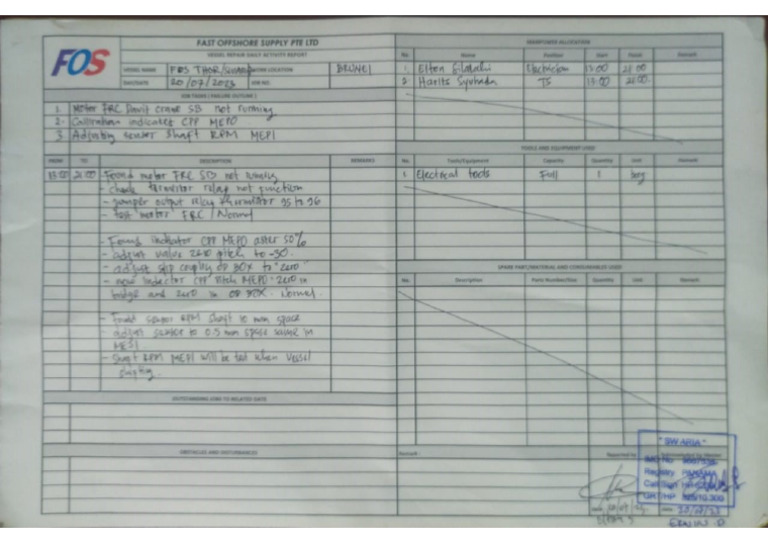 FOS
FAST OFFSHORE SUPPLY PTE LTD
VESSEL REPAIR DAILY ACTIVITY REPORT
VESSEL NAME FOS THOR/ WORK LOCATION BRUNEI
DAY/DATE 20/07/2023 JOB NO.
JOB TASKS (FAILURE OUTLINE)
1. Motor FRC Davit crane SB not running
2. Calibration indicator CPP MEPO
3. Adjusting sensor shaft RPM MEPI
FROM TO DESCRIPTION REMARKS
13:00 21:00 - Found motor FRC SB not running
- check termistor relay not function
- jumper output relay thermistor 95 to 96
- test motor FRC / Normal
- Found indicator CPP MEPO after 50%
- adjust value zero pitch to -30.
- adjust slip coupling OP 30X to "zero"
- now indicator CPP Pitch MEPO "zero in
bridge and zero in OP 30X. Normal.
- Found sensor RPM shaft 10 mm space
- adjust sensor to 0.5 mm space same in
- Shaft RPM MEPI will be test when vessel
OUTSTANDING JOBS TO RELATED DATE
OBSTACLES AND DISTURBANCES
MANPOWER ALLOCATION
No. Name Position Start Finish Remark
1. Elton Electrician 13:00 21:00
2. Harits Syuhada TS 13:00 21:00
TOOLS AND EQUIPMENT USED
No. Tools/Equipment Capacity Quantity Unit Remark
1. Electrical tools Full 1 bag
SPARE PART/MATERIAL AND CONSUMABLES USED
No. Description Parts Number/Size Quantity Unit Remark
Remark
Reported by
"SWARIA"
IMO No
Registry PANAMA
Call Sign
GRT/HP
20/07/23
ERWIN D